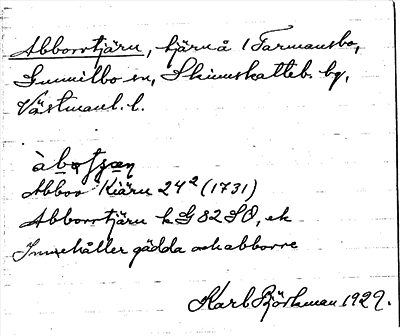 Abborrtjärn, tjärn å 1 Farmansbo,
Gunnilbo sn, Skinnskatteb. hg,
Västmanl. l.
àbotjæn
Abbor Kiärn 24² (1731)
Abborrtjärn k G 82 SO, ek
Innehåller gädda och abborre
Karl Björkman 1929.